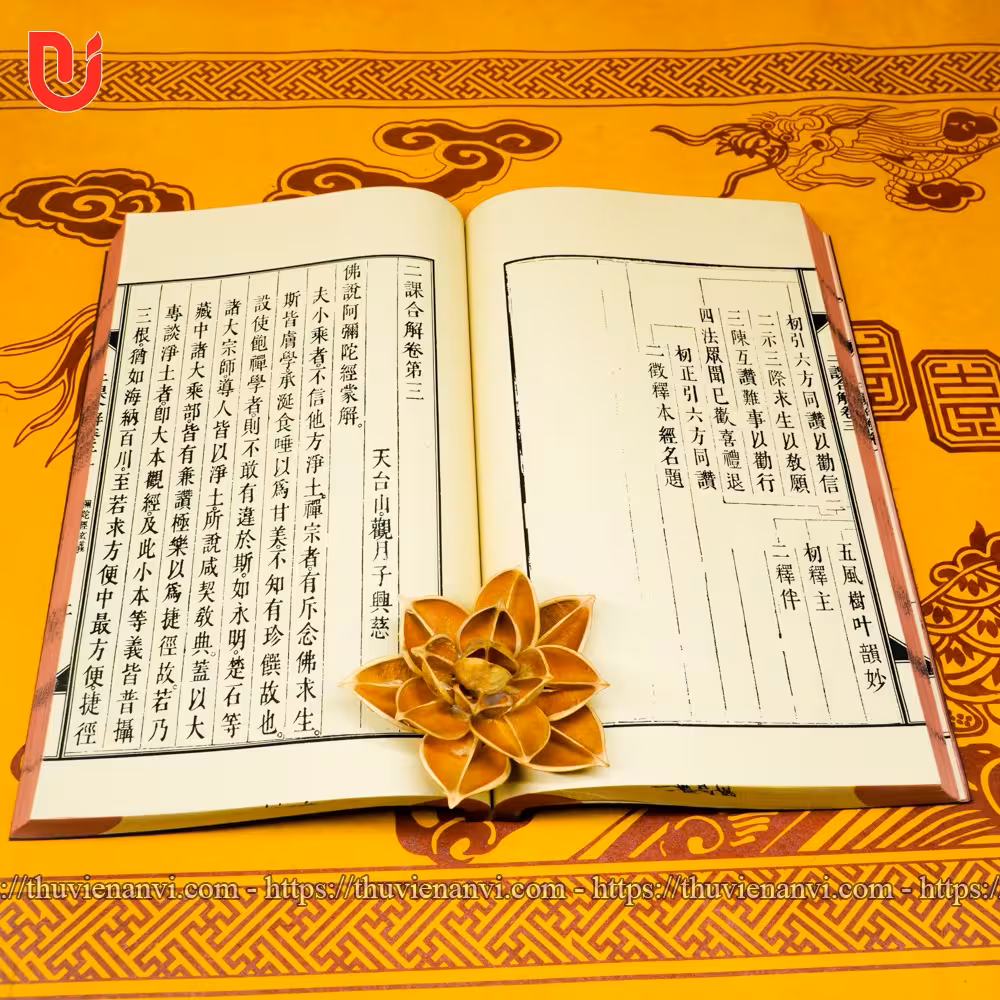 初引六方同讚以勸信
五風樹叶韻妙
二示三際求生以發願
初釋主
三陳互讚難事以勸行
二釋伴
四法眾聞已歡喜禮退
初正引六方同讚
二徵釋本經名題
二課合解卷第三
天台山。觀月子興慈
佛說阿彌陀經蒙解。
夫小乘者。不信他方淨土。禪宗者。有斥念佛求生。
斯皆膚學。承涎食唾以爲甘美。不知有珍饌故也。
設使飽禪學者。則不敢有違於斯。如永明。楚石等
諸大宗師。導人皆以淨土。所說咸契敎典。蓋以大
藏中諸大乘部。皆有兼讚極樂以爲捷徑故。若乃
專談淨土者。卽大本觀經。及此小本等義。皆普攝
三根。猶如海納百川。至若求方便中最方便。捷徑
https://thuvienanvi.com - https://thuvienanvi.com - https://thuvienanvi.com